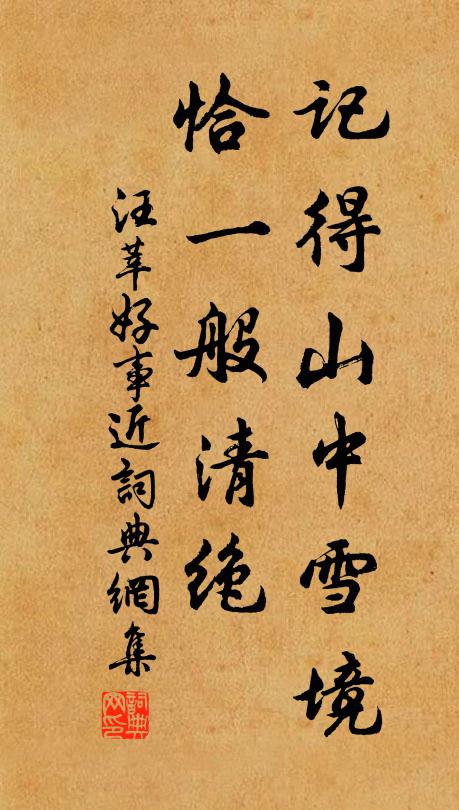 记得山中雪境
恰一般清绝
汪莘好事近詞典網集
詞典网印